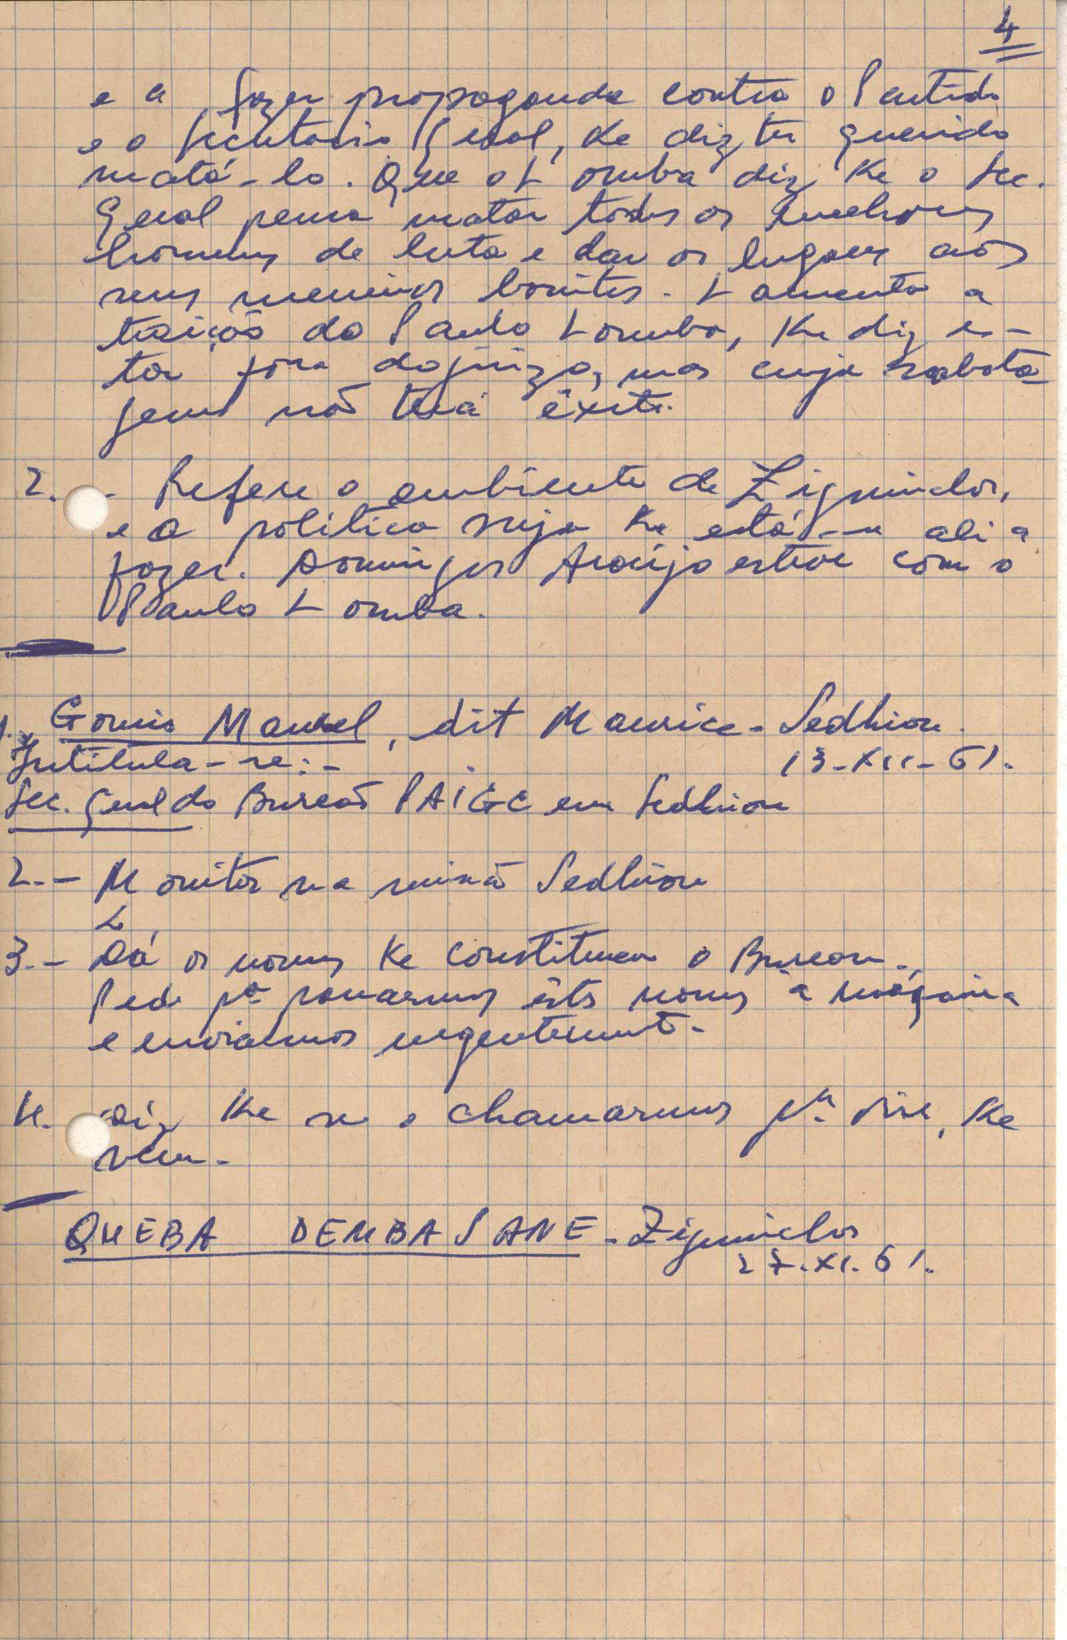 4
e a fazer propaganda contra o Partido
e o Secretario Geral, ke diz ter querido
matá-lo. Que o Lomba diz ke o Sec.
Geral pensa matar todos os melhores
homens de luta e dar os lugares aos
seus meninos bonitos. Lamenta a
traição do Paulo Lomba, ke diz es-
tar fora do juizo, mas cuja sabota-
gem não terá êxito.
2. - Refere o ambiente de Ziguinchor,
e a politica suja ke está-se ali a
fazer. Domingos Araújo esteve com o
Paulo Lomba.
1. Gomis Manuel, dit Maurice - Sedhiou
Intitula-se: - 13-XII-61.
Sec. Geral do Bureão PAIGC em Sedhiou
2. - Monitor na missão Sedhiou
3. - Dá os nomes ke constituem o Bureau.
Pede pª passarmos êsts nomes à máquina
e enviarmos urgentemente.
4. Diz ke se o chamarmos pª , ke
vem.
QUEBA DEMBA SANE - Ziguinchor
27.XI.61.